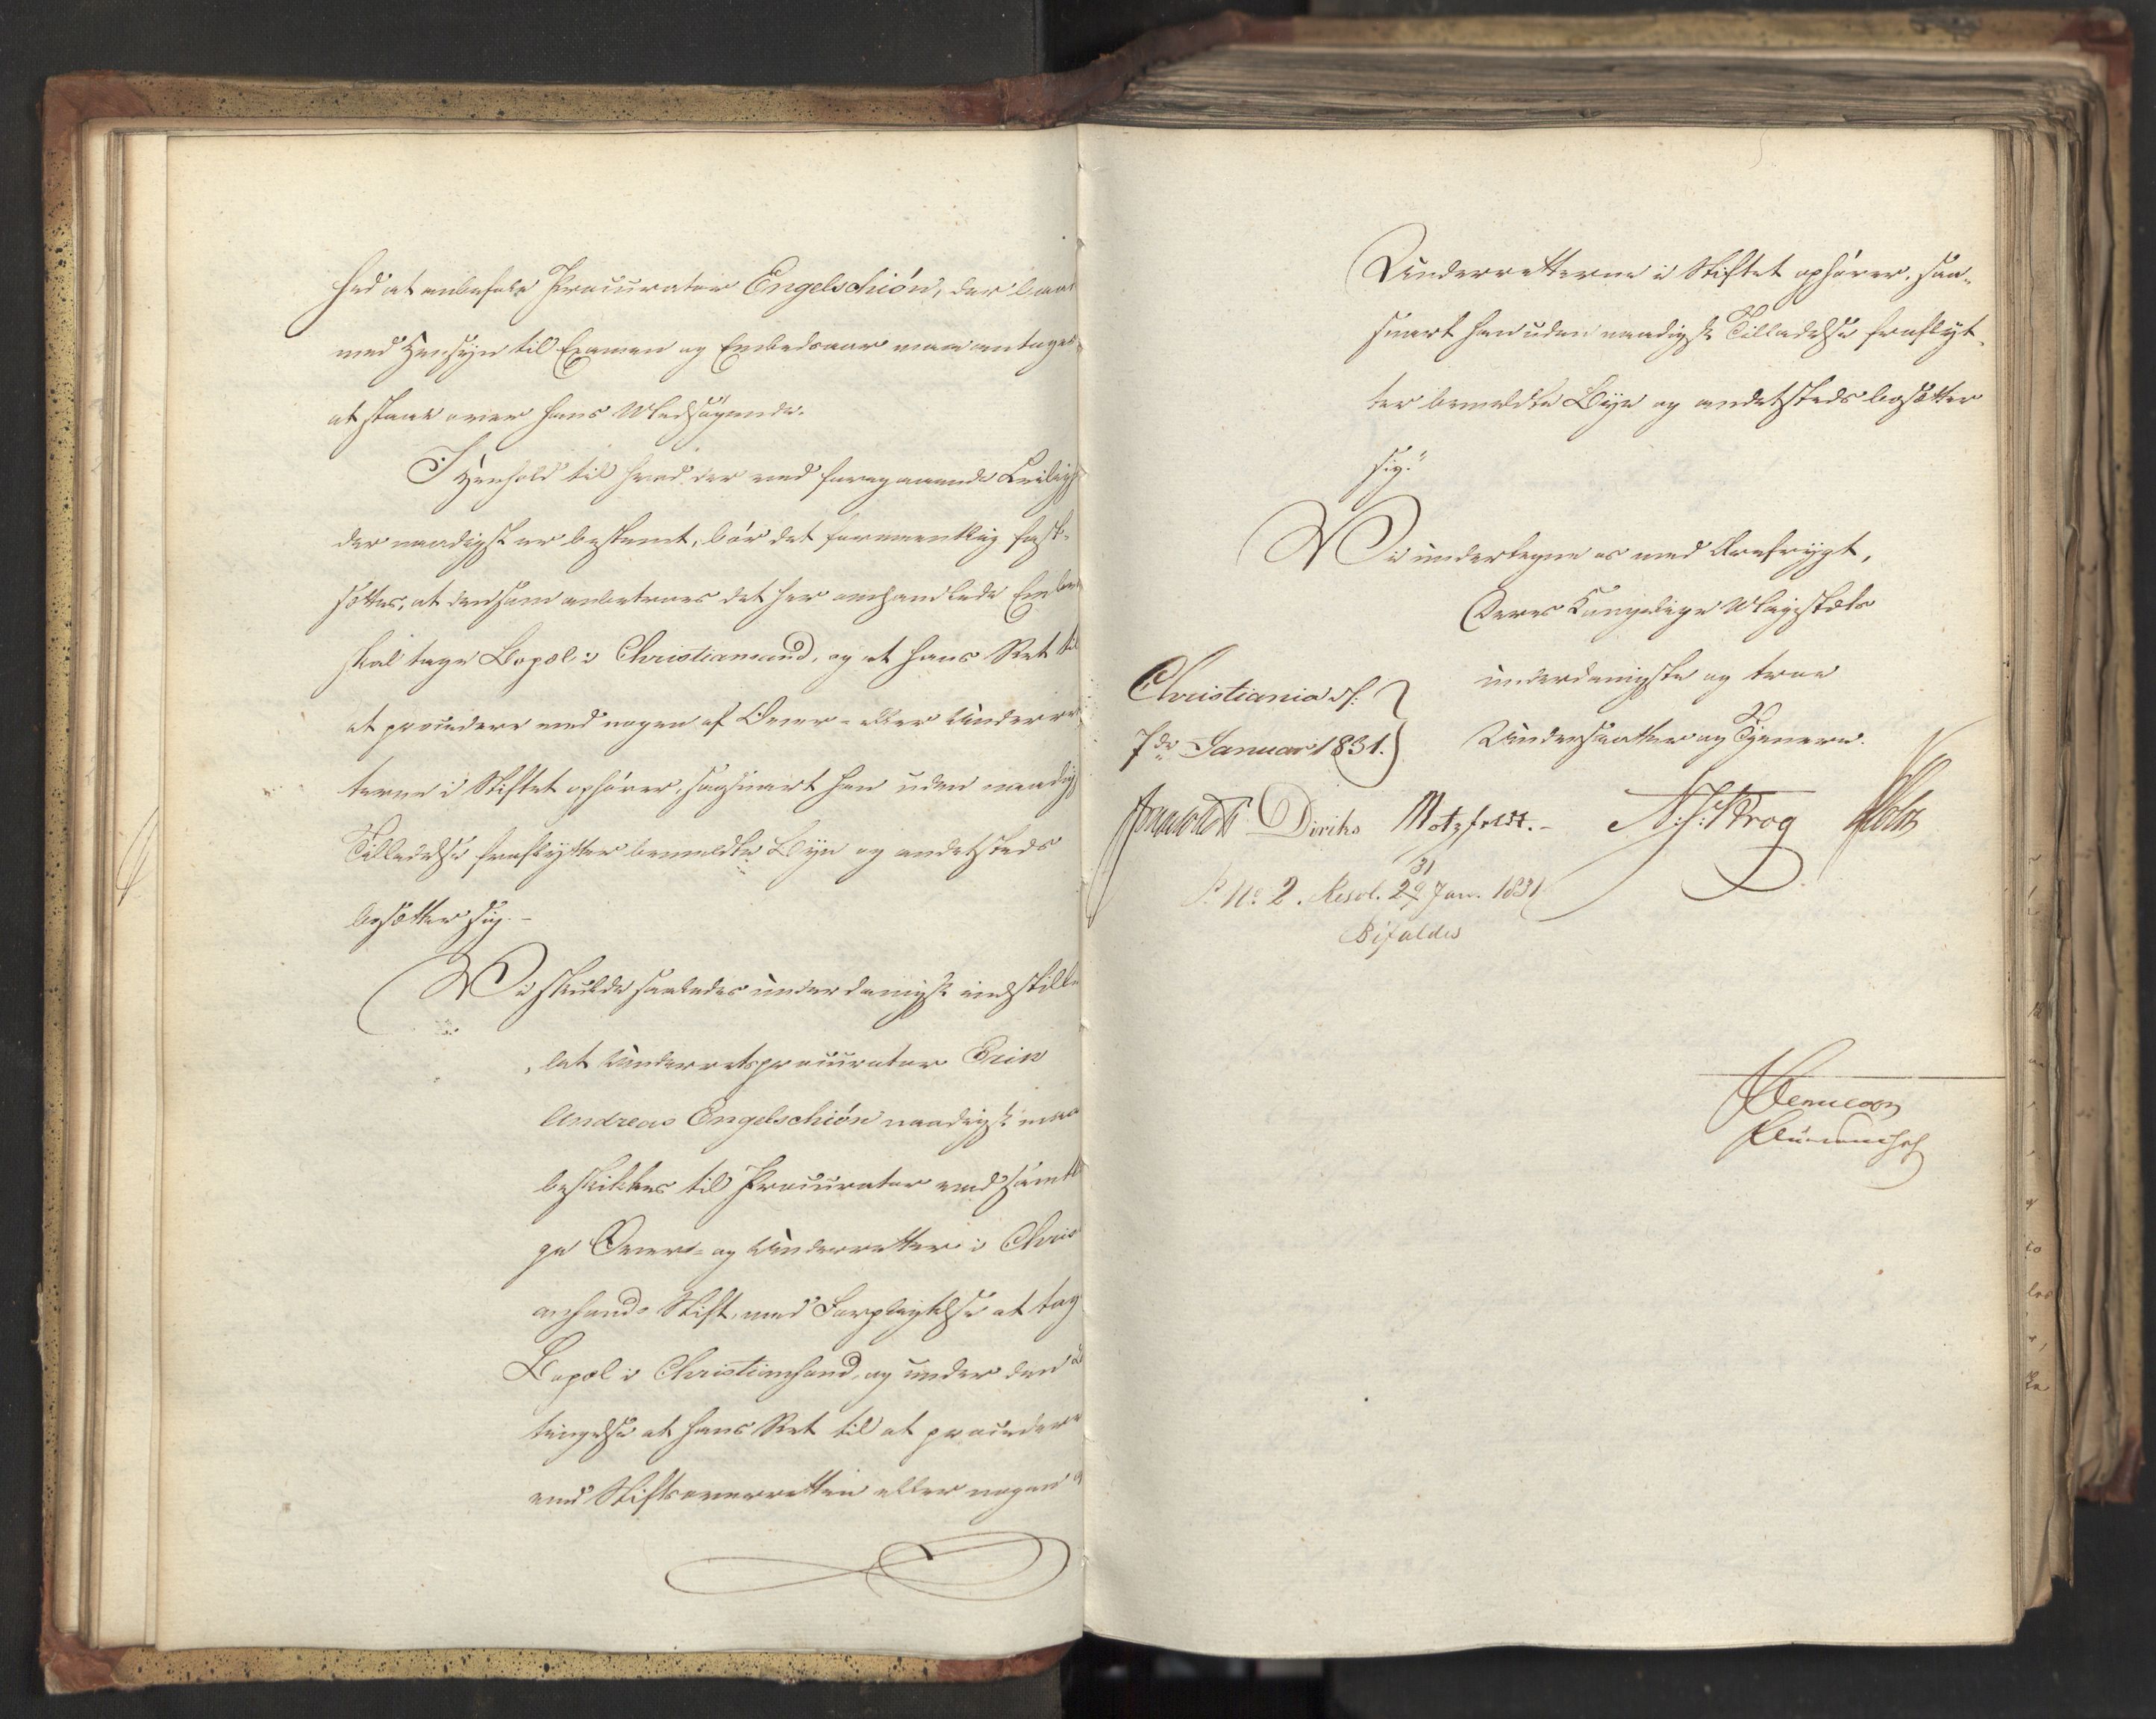 hed at anbefale Procurator Engelschiön, der baade
med Hensyn til Examen og Embedsaar maa antages
at staae over hans Medsøgende.
I Henhold til hvad der ved foregaaende Leilighe
der naadigst er bestemt, bør det formeentlig fast-
sættes, at den som anbetroes det her omhandlede Embe
skal tage Bopæl i Christiansand, og at hans Ret til
at procedere ved nogen af Over- eller Underret
terne i Stiftet ophører, saasnart han uden naadigst
Tilladelse fraflytter bemeldte Bye og andetsteds
bosætter sig.-
Vi skulde saaledes underdanigst indstille
„at Underretsprocurator Eric
Andreas Engelschiön naadigst maa
beskikkes til Procurator ved samtli
ge Over- og Underretter i Christi
ansands Stift, med Forpligtelse at tage
Bopæl i Christiansand, og under den Be
tingelse at hans Ret til at procedere
ved Stiftsoverretten eller nogen af
Underretterne i Stiftet ophører, saa-
snart han uden naadigst Tilladelse fraflyt-
ter bemeldte Bye og andetsteds bosætter
sig.“
Vi undertegne os med Ærefrygt,
Deres Kongelige Majestæts
underdanigste og troe
Undersaatter og Tjenere.
Christiania d:
7de Januar 1831.
Diriks Motzfeldt.- N. J. Krog Holst
P. No. 2. Resol. 29 31 Jan. 1831
Bifaldes